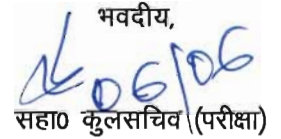 भवदीय,
06/06
सहा0 कुलसचिव (परीक्षा)